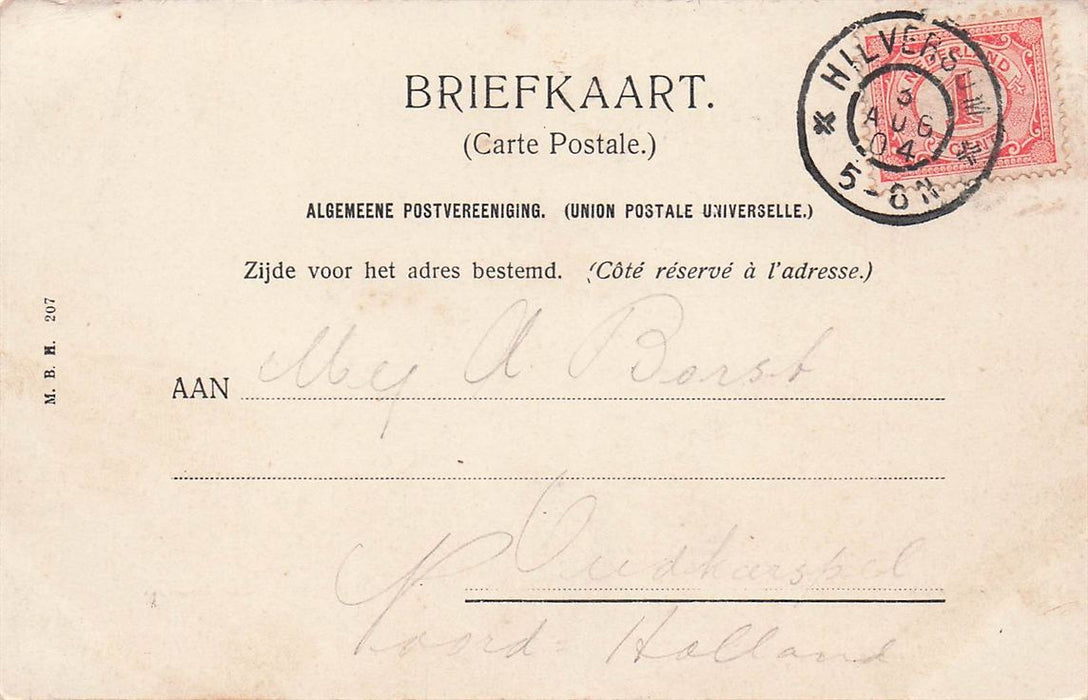 BRIEFKAART.
(Carte Postale.)
ALGEMEENE POSTVEREENIGING. (UNION POSTALE UNIVERSELLE.)
Zijde voor het adres bestemd. (Côté réservé à l'adresse.)
AAN Mej A Borst
Oudkarspel
Noord-Holland
M. B. H. 207
HILVERSUM
3
AUG
04
5-8N
NEDERLAND
1
CENT